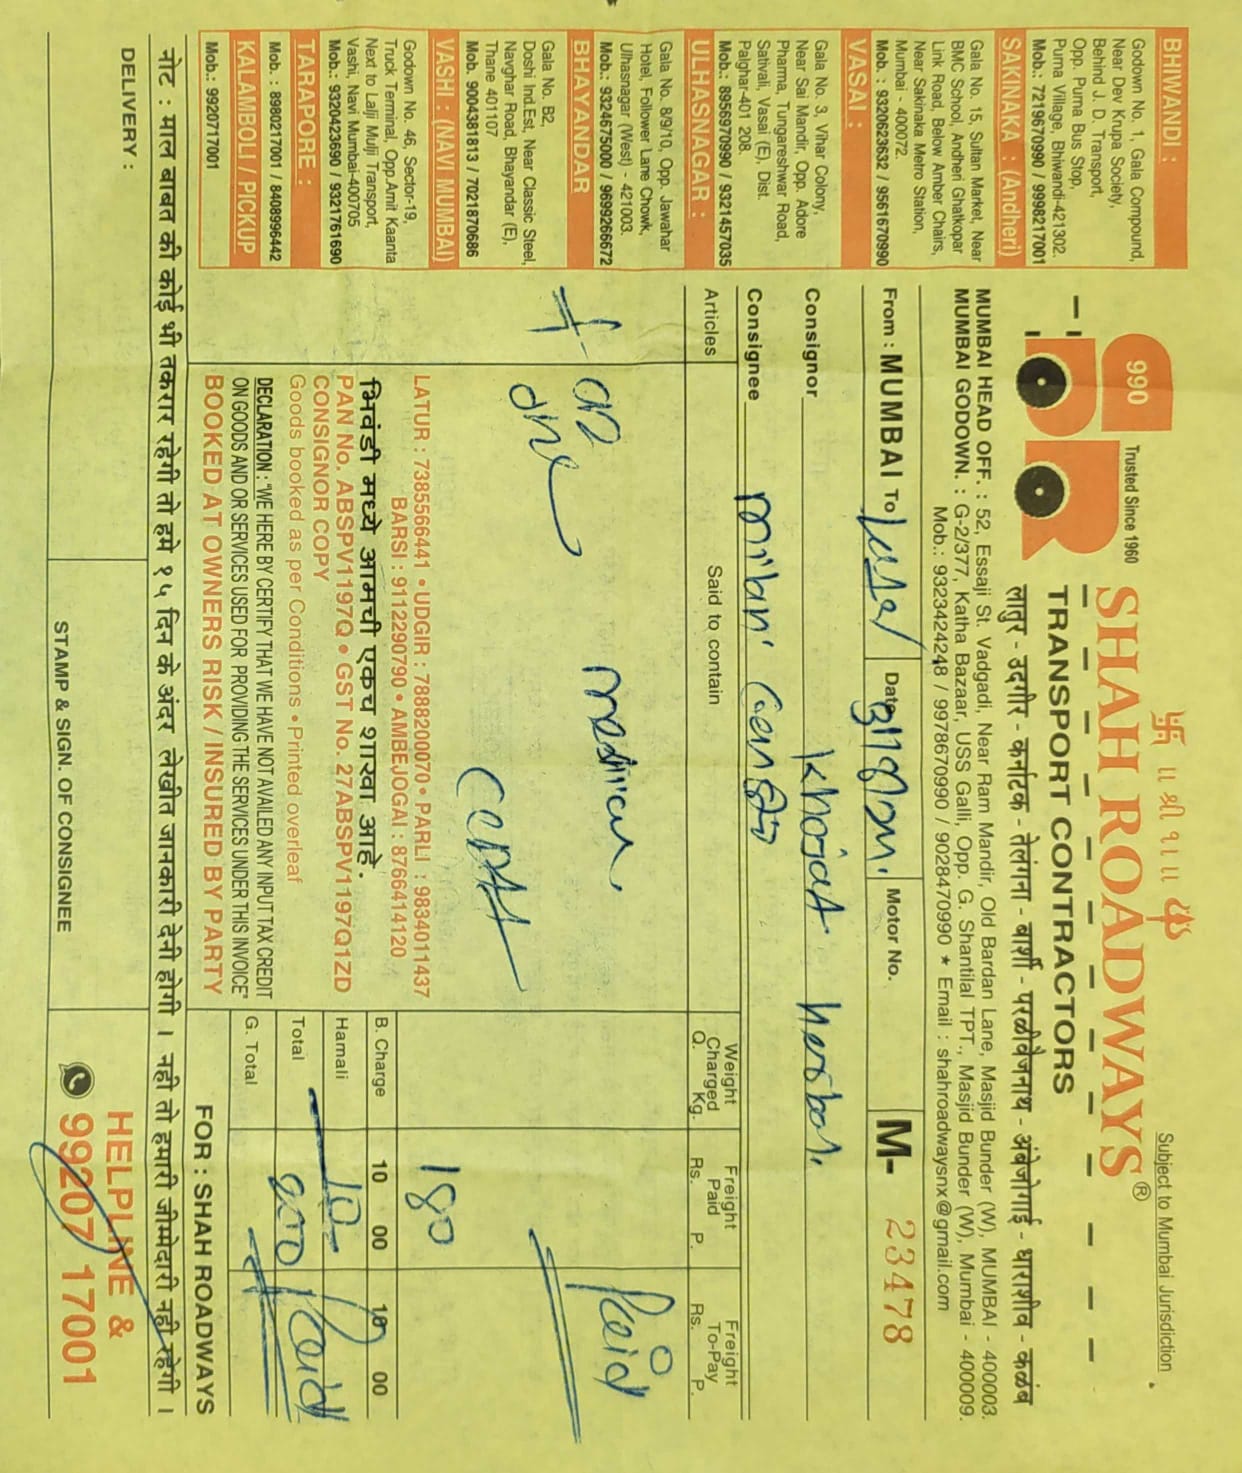 卐 ॥ श्री १ ॥ ॥
Subject to Mumbai Jurisdiction
990
Trusted Since 1960
SHAH ROADWAYS®
TRANSPORT CONTRACTORS
लातुर - उदगीर - कर्नाटक - तेलंगना - बार्शी - परळीवैजनाथ - अंबेजोगाई - धाराशीव - कळंब
MUMBAI HEAD OFF. : 52, Essaji St. Vadgadi, Near Ram Mandir, Old Bardan Lane, Masjid Bunder (W), MUMBAI - 400003.
MUMBAI GODOWN. : G-2/377, Katha Bazaar, USS Galli, Opp. G. Shantilal TPT., Masjid Bunder (W), Mumbai - 400009.
Mob.: 9323424248 / 9978670990 / 9028470990 ★ Email : shahroadwaysnx@gmail.com
From : MUMBAI To Latur Date Motor No. M- 23478
Consignor Khojat herbal.
Consignee milan
Articles Said to contain Weight Charged Q. Kg. Freight Paid Rs. P. Freight To-Pay Rs. P.
1
one
medicine
Paid
180
LATUR : 7385566441 • UDGIR : 7888200070 • PARLI : 9834011437
BARSI : 9112290790 • AMBEJOGAI : 8766414120
भिवंडी मध्ये आमची एकच शाखा आहे.
PAN No. ABSPV1197Q • GST No. 27ABSPV1197Q1ZD
CONSIGNOR COPY
Goods booked as per Conditions • Printed overleaf
DECLARATION : "WE HERE BY CERTIFY THAT WE HAVE NOT AVAILED ANY INPUT TAX CREDIT
ON GOODS AND OR SERVICES USED FOR PROVIDING THE SERVICES UNDER THIS INVOICE"
BOOKED AT OWNERS RISK / INSURED BY PARTY
B. Charge 10 00 10 00
Hamali 10-
Total 200 Paid
G. Total
FOR : SHAH ROADWAYS
BHIWANDI :
Godown No. 1, Gala Compound,
Near Dev Krupa Society,
Behind J. D. Transport,
Opp. Purna Bus Stop,
Purna Village, Bhiwandi-421302.
Mob.: 7219670990 / 9998217001
SAKINAKA : (Andheri)
Gala No. 15, Sultan Market, Near
BMC School, Andheri Ghatkopar
Link Road, Below Amber Chairs,
Near Sakinaka Metro Station,
Mumbai - 400072.
Mob. : 9320623632 / 9561670990
VASAI :
Gala No. 3, Vihar Colony,
Near Sai Mandir, Opp. Adore
Pharma, Tungareshwar Road,
Sativali, Vasai (E), Dist.
Palghar-401 208.
Mob.: 8956970990 / 9321457035
ULHASNAGAR :
Gala No. 8/9/10, Opp. Jawahar
Hotel, Follower Lane Chowk,
Ulhasnagar (West) - 421003.
Mob.: 9324675000 / 9699266672
BHAYANDAR
Gala No. B2,
Doshi Ind.Est, Near Classic Steel,
Navghar Road, Bhayandar (E),
Thane 401107
Mob. 9004381813 / 7021870686
VASHI : (NAVI MUMBAI)
Godown No. 46, Sector-19,
Truck Terminal, Opp.Amit Kaanta
Next to Lalji Mulji Transport,
Vashi, Navi Mumbai-400705
Mob.: 9320423690 / 9321761690
TARAPORE :
Mob. : 8980217001 / 8408996442
KALAMBOLI / PICKUP
Mob.: 9920717001
नोट : माल बाबत की कोई भी तकरार रहेगी तो हमे १५ दिन के अंदर लेखीत जानकारी देनी होगी । नही तो हमारी जीम्मेदारी नही रहेगी ।
DELIVERY :
STAMP & SIGN. OF CONSIGNEE
HELPLINE &
99207 17001